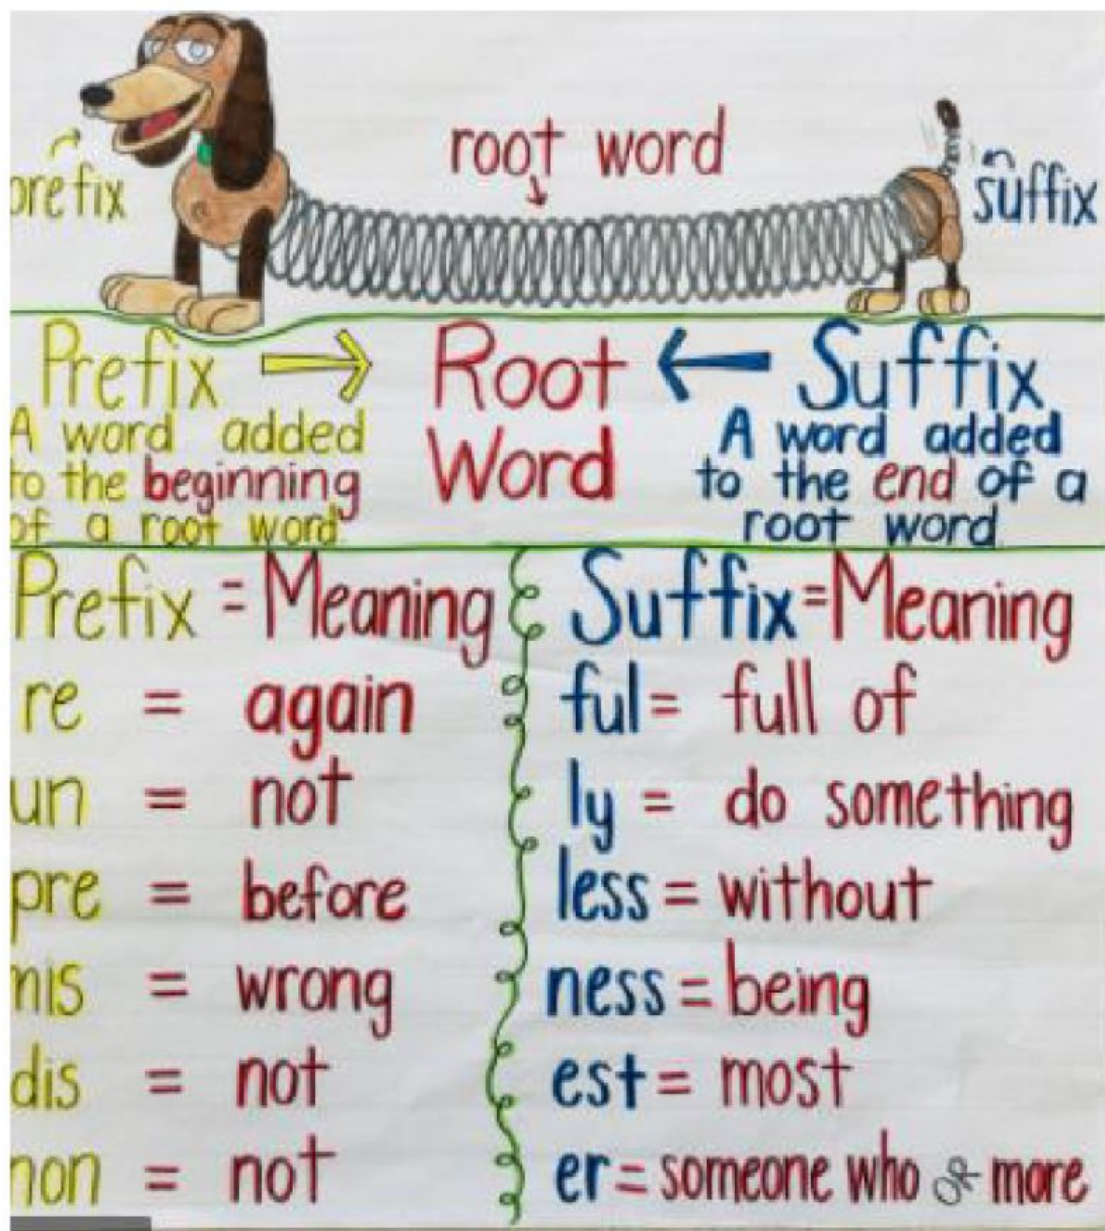 root word
prefix
suffix
Prefix → Root Word ← Suffix
A word added
to the beginning
of a root word.
A word added
to the end of a
root word
Prefix = Meaning
re = again
un = not
pre = before
mis = wrong
dis = not
non = not
Suffix = Meaning
ful = full of
ly = do something
less = without
ness = being
est = most
er = someone who or more